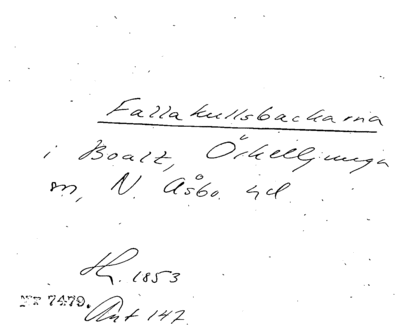 Fallakullsbackarna
i Boalt, Örkelljunga
sn, N. Åsbo hd
Hg. 1853
NF 7479.
Ant 147